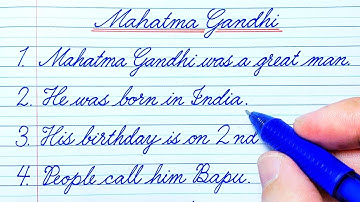 Mahatma Gandhi
1. Mahatma Gandhi was a great man.
2. He was born in India.
3. His birthday is on 2nd
4. People call him Bapu.